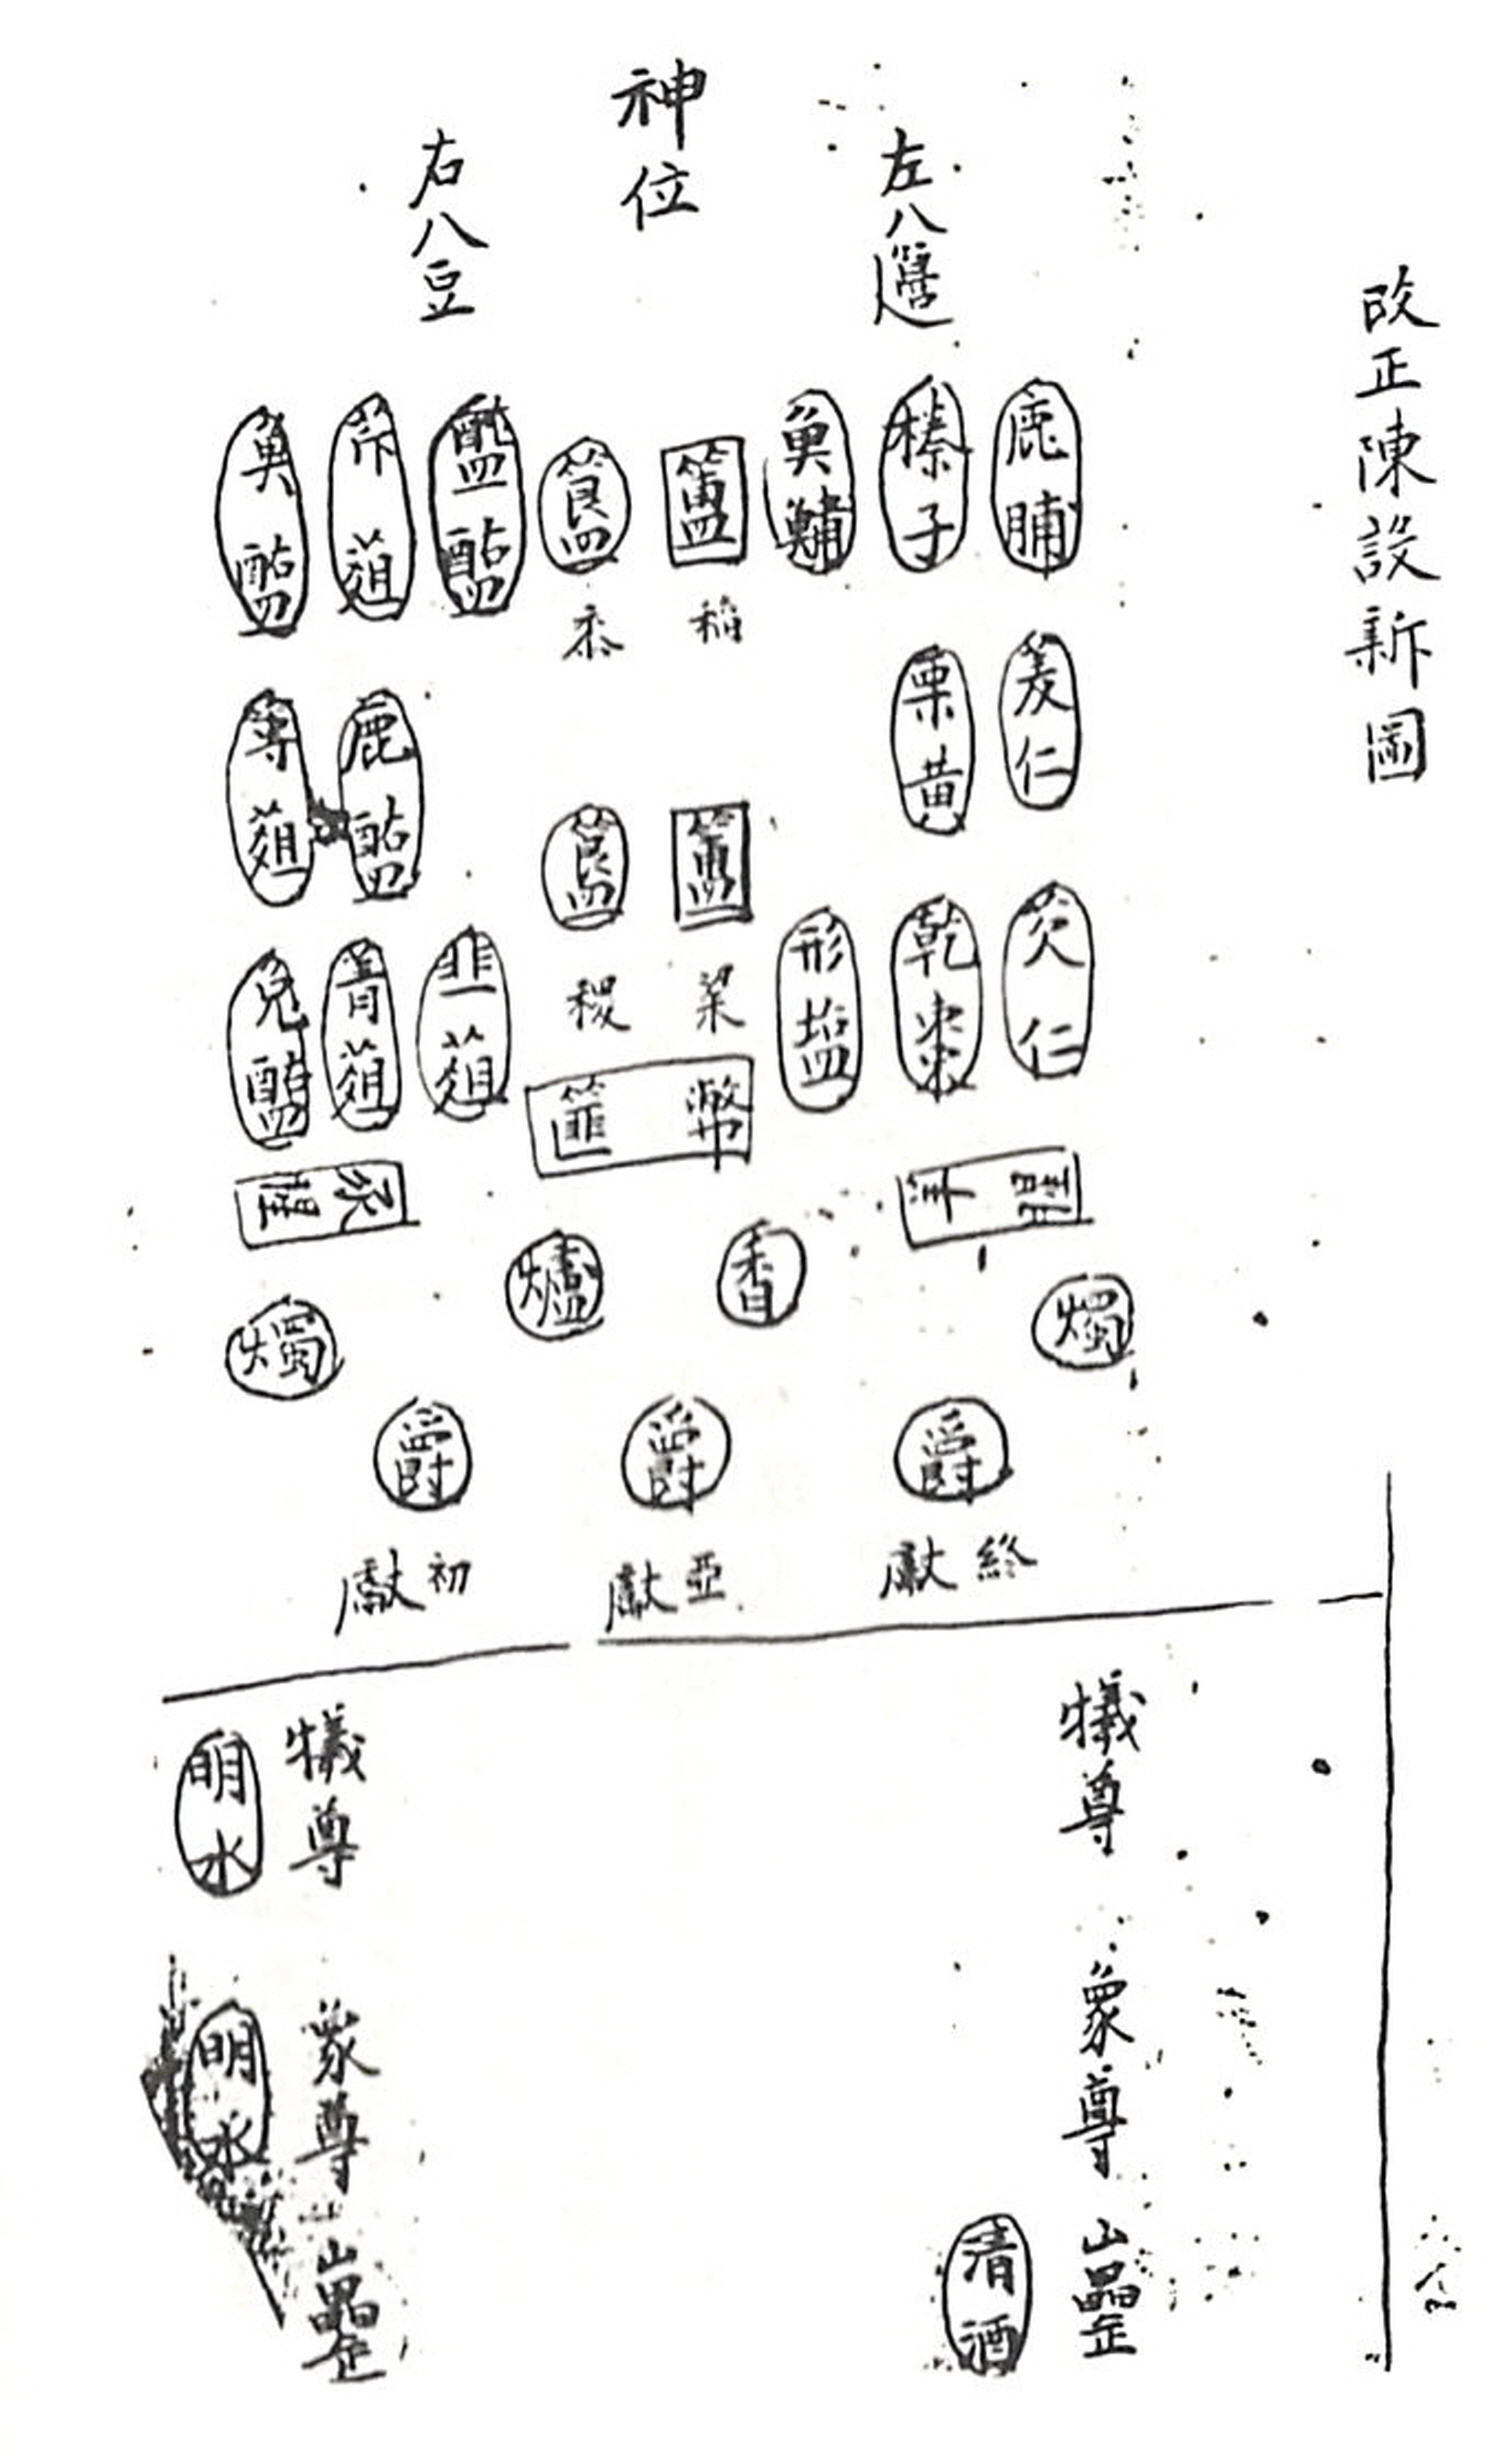 改正陳設新圖
神位
左八籩
右八豆
鹿脯
榛子
魚鱐
簠
簋
醓醢
芹菹
魚醢
稻
黍
菱仁
栗黃
鹿醢
笋菹
簠
簋
梁
稷
芡仁
乾棗
形塩
韭菹
菁菹
兎醢
幣篚
羊腥
豕腥
香
爐
燭
燭
爵
爵
爵
終獻
亞獻
初獻
犧尊
象尊
山罍
清酒
犧尊
明水
象尊
明水
山罍